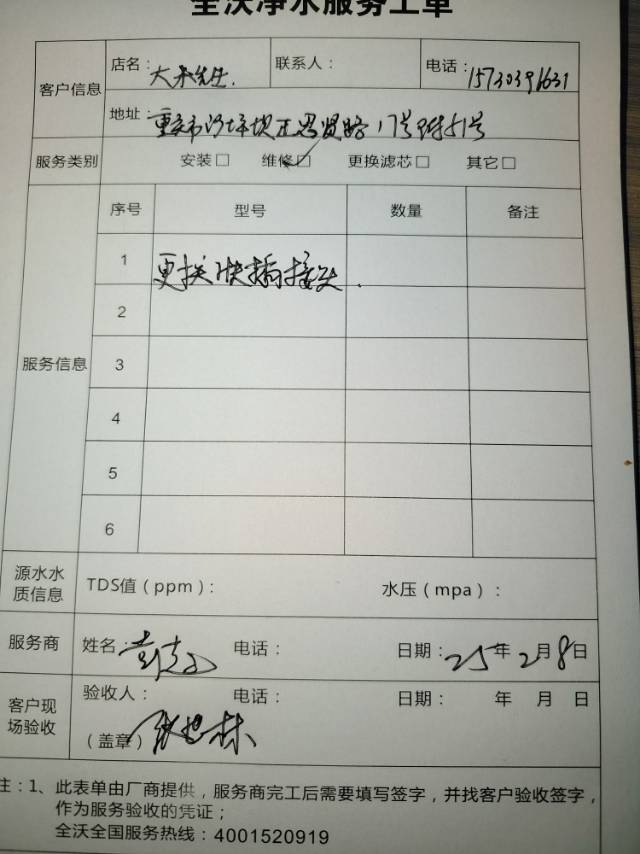 全沃净水服务工单
客户信息
店名: 大米先生.
联系人:
电话: 15730391631
地址: 重庆市沙坪坝区思贤路17号附51号
服务类别 安装□ 维修☑ 更换滤芯□ 其它□
服务信息
序号 型号 数量 备注
1 更换快插接头.
2
3
4
5
6
源水水
质信息
TDS值(ppm): 水压(mpa):
服务商 姓名: 电话: 日期: 25年2月8日
客户现
场验收
验收人: 电话: 日期: 年 月 日
(盖章)
注:1、此表单由厂商提供,服务商完工后需要填写签字,并找客户验收签字,
作为服务验收的凭证;
全沃全国服务热线:4001520919